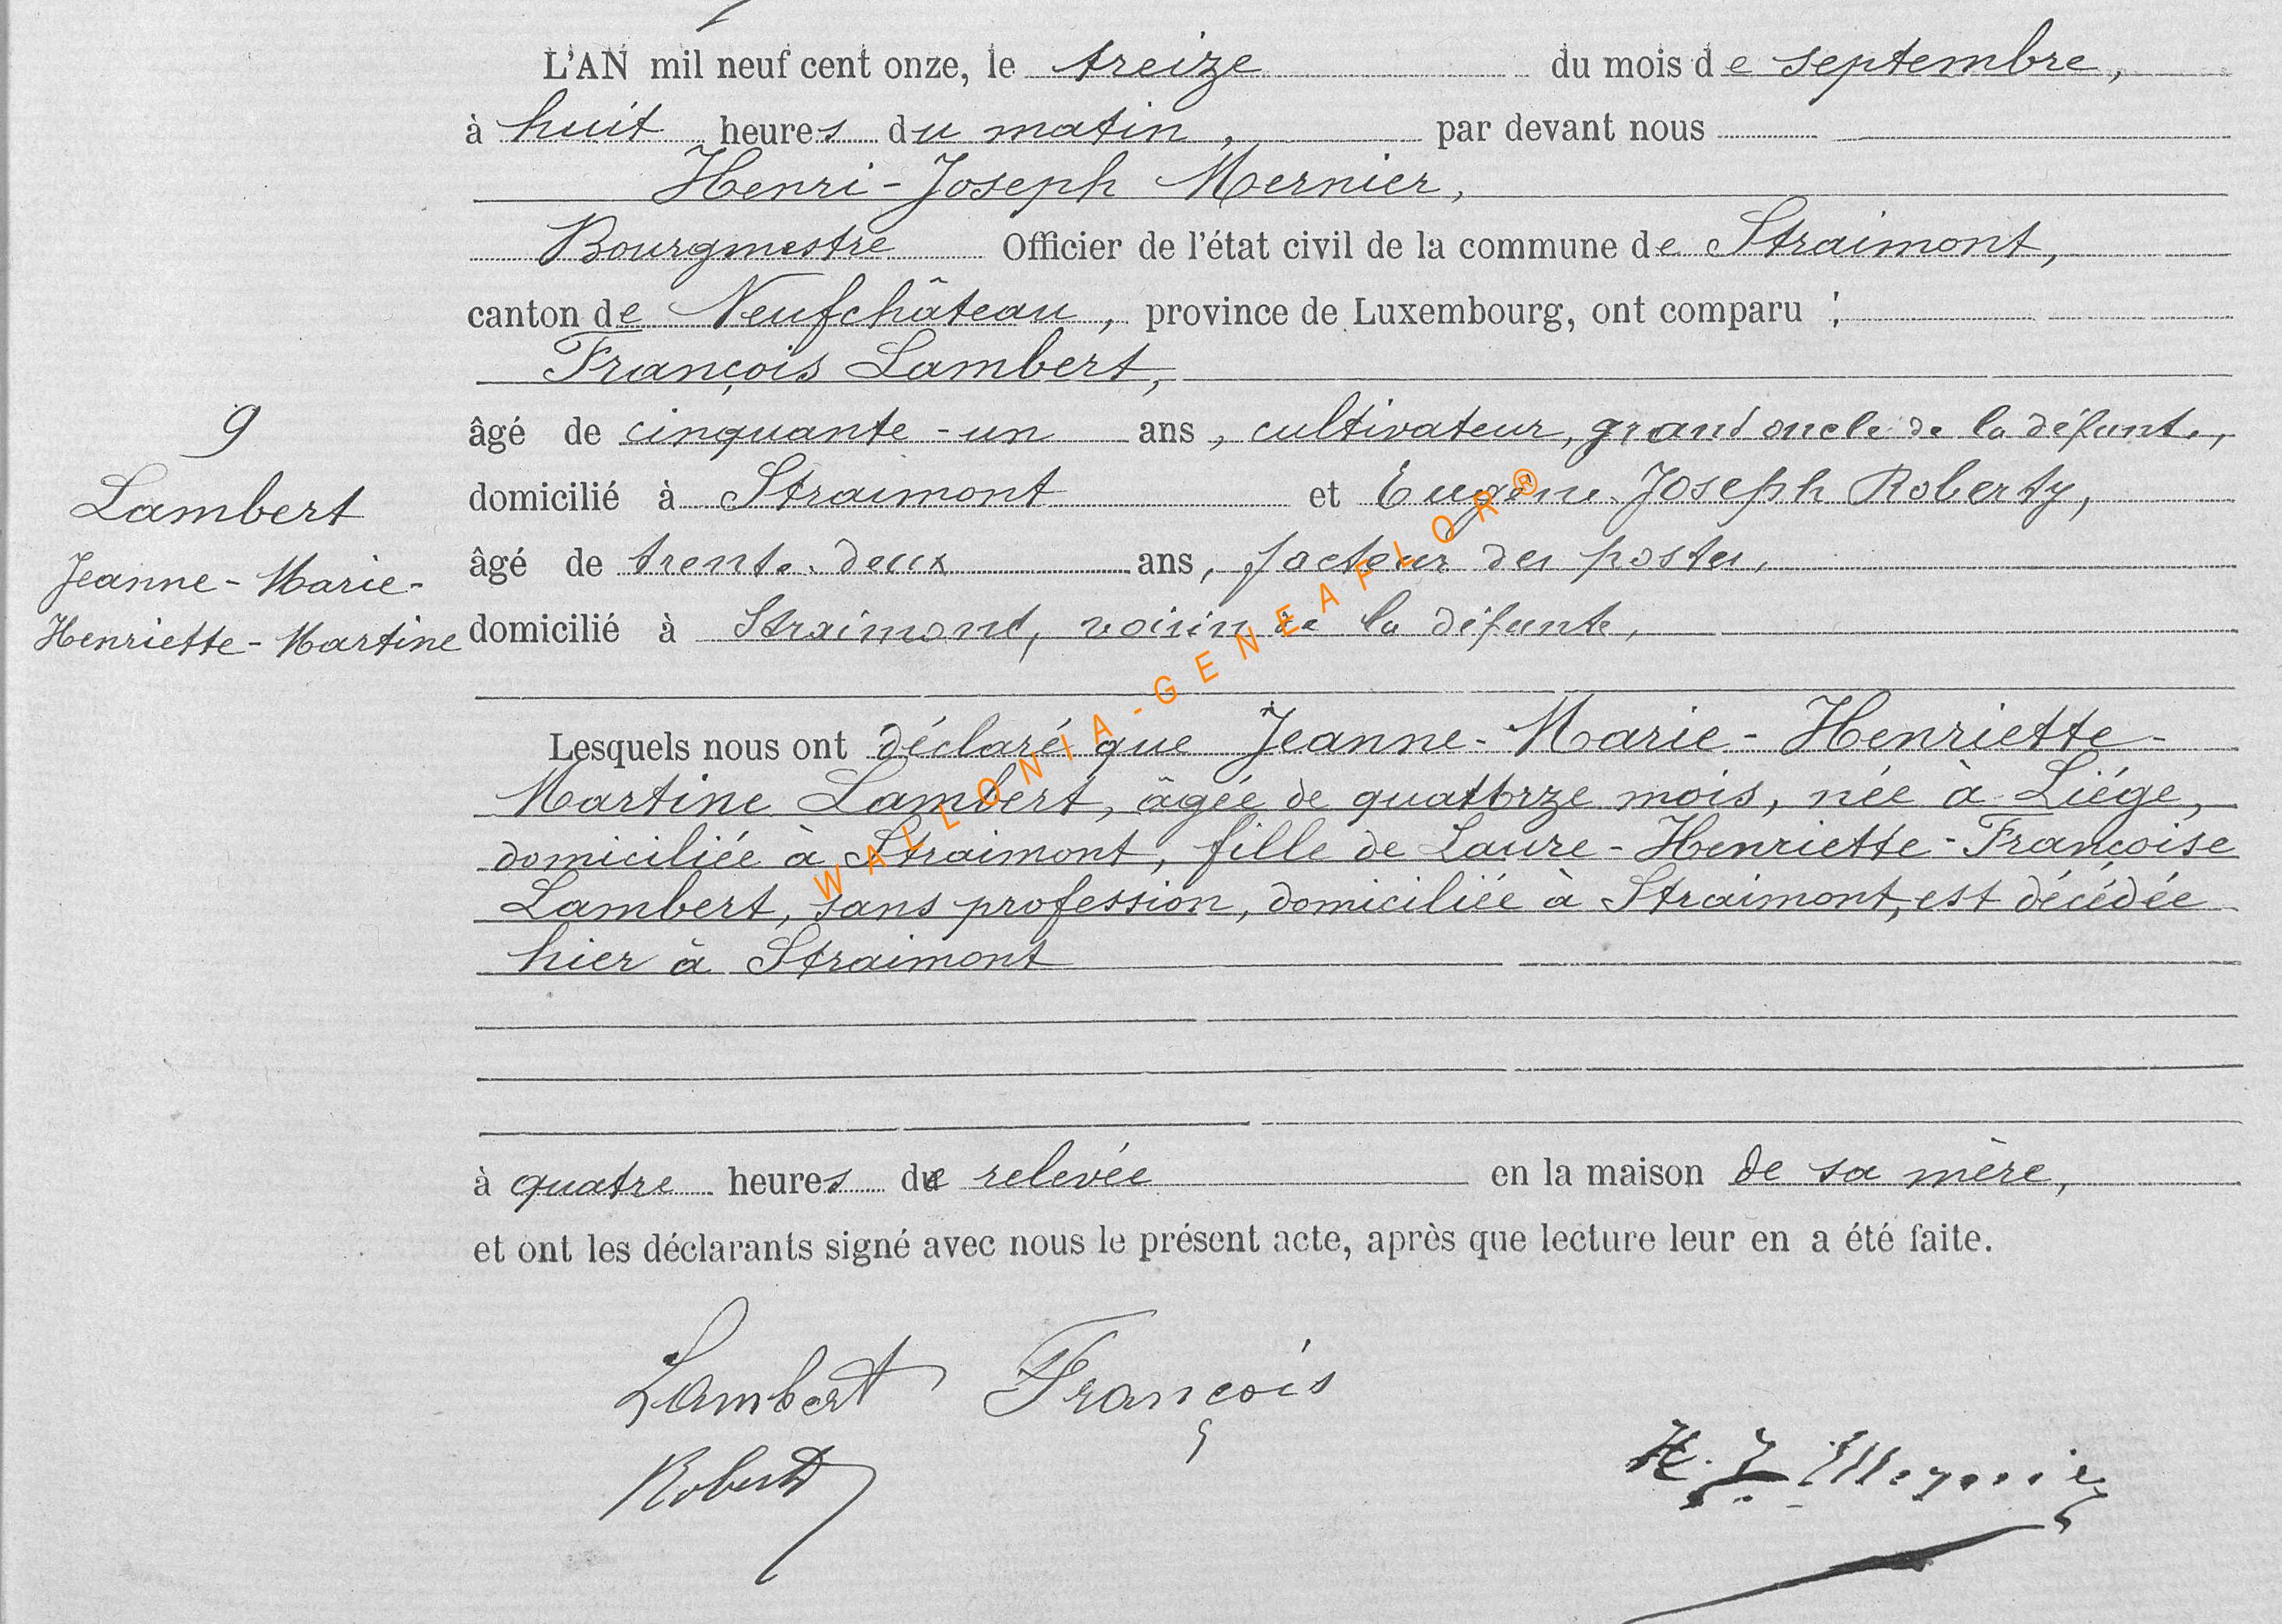 L'AN mil neuf cent onze, le treize du mois de septembre,
à huit heures du matin, par devant nous
Henri-Joseph Mernier,
Bourgmestre Officier de l'état civil de la commune de Straimont,
canton de Neufchâteau, province de Luxembourg, ont comparu :
François Lambert,
9
âgé de cinquante-un ans, cultivateur, grand oncle de la défunte,
Lambert
domicilié à Straimont et Eugène Joseph Roberty,
Jeanne-Marie-
âgé de trente-deux ans, facteur des postes,
Henriette-Martine
domicilié à Straimont, voisin de la défunte,
WALLONIA-GENEAFLOR®
Lesquels nous ont déclaré que Jeanne-Marie-Henriette-
Martine Lambert, âgée de quatorze mois, née à Liége,
domiciliée à Straimont, fille de Laure-Henriette-Françoise
Lambert, sans profession, domiciliée à Straimont, est décédée
hier à Straimont
à quatre heures de relevée en la maison de sa mère,
et ont les déclarants signé avec nous le présent acte, après que lecture leur en a été faite.
Lambert François
Roberty
H. J. Mernier